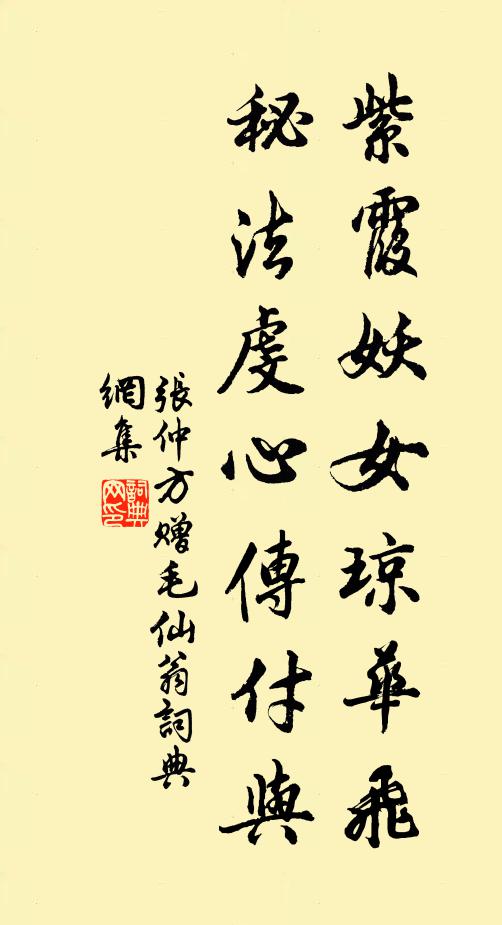 紫霞妖女琼華飛
秘法虔心傳付與
張仲方贈毛仙翁詞典
網集
詞典
网印